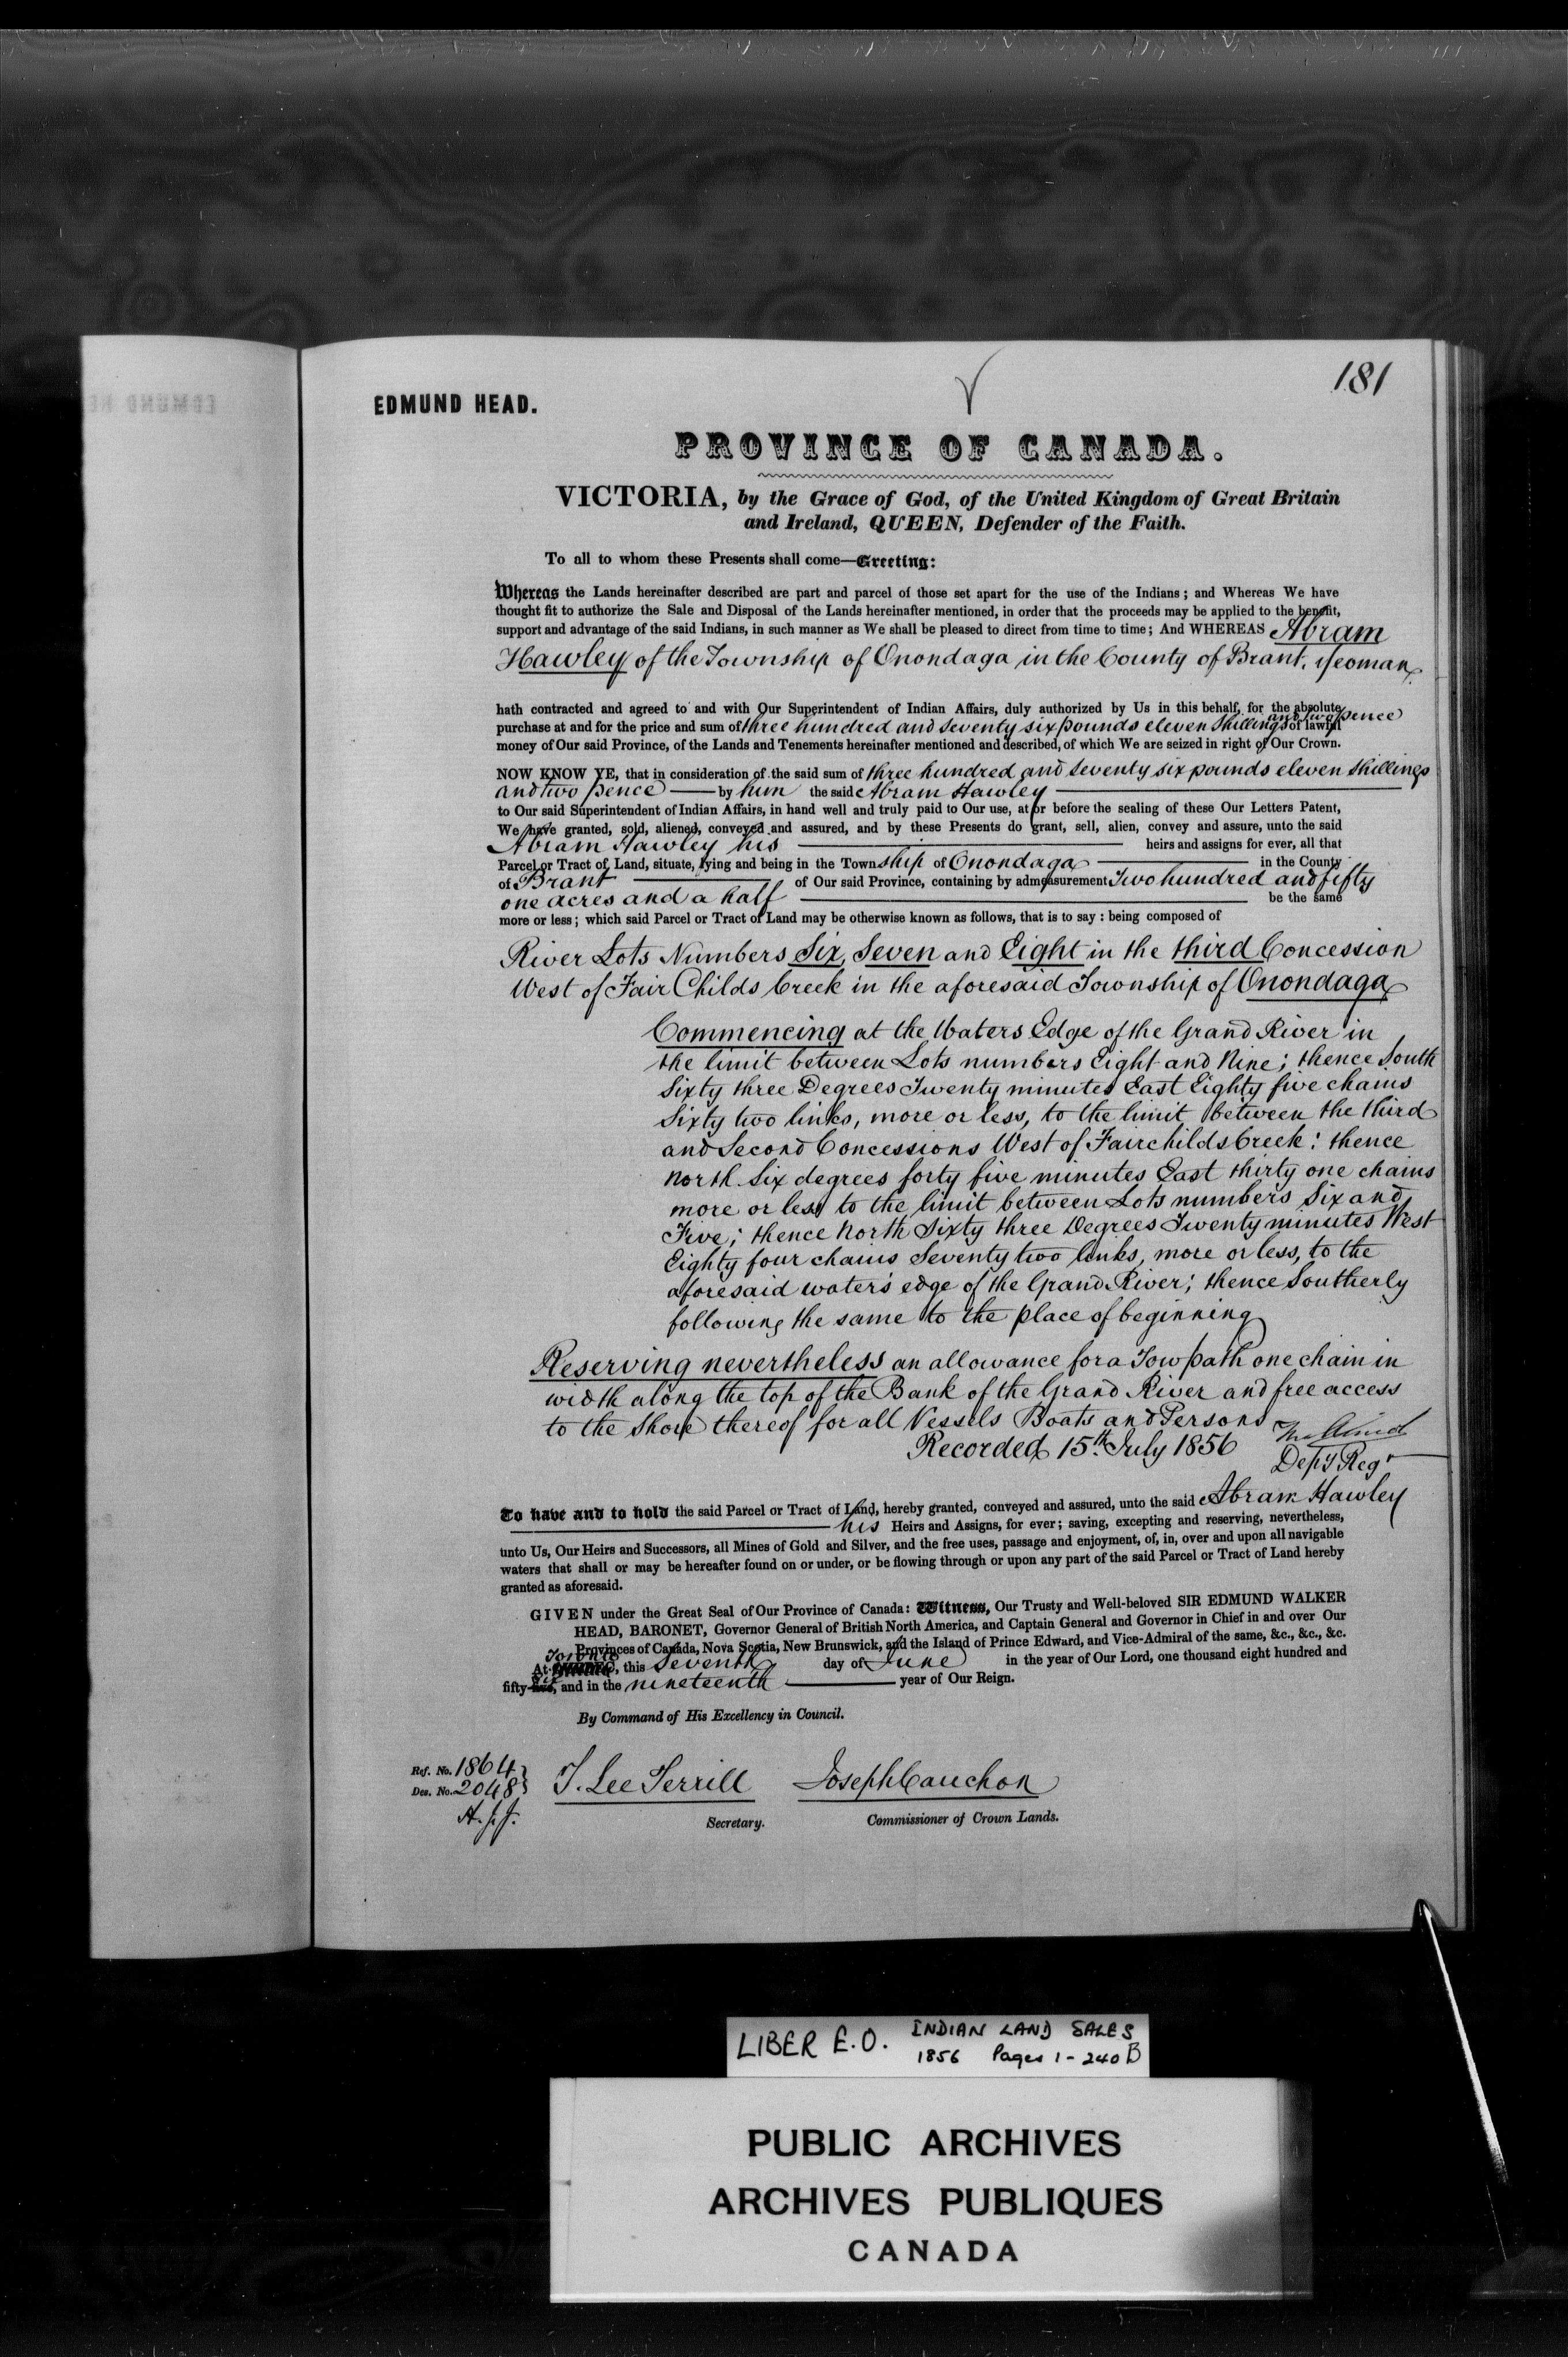 181
EDMUND HEAD.
PROVINCE OF CANADA.
VICTORIA, by the Grace of God, of the United Kingdom of Great Britain
and Ireland, QUEEN, Defender of the Faith.
To all to whom these Presents shall come—Greeting:
Whereas the Lands hereinafter described are part and parcel of those set apart for the use of the Indians; and Whereas We have
thought fit to authorize the Sale and Disposal of the Lands hereinafter mentioned, in order that the proceeds may be applied to the benefit,
support and advantage of the said Indians, in such manner as We shall be pleased to direct from time to time; And WHEREAS Abram
Hawley of the Township of Onondaga in the County of Brant, Yeoman
hath contracted and agreed to and with Our Superintendent of Indian Affairs, duly authorized by Us in this behalf, for the absolute
purchase at and for the price and sum of three hundred and seventy six pounds eleven shillings and two pence of lawful
money of Our said Province, of the Lands and Tenements hereinafter mentioned and described, of which We are seized in right of Our Crown.
NOW KNOW YE, that in consideration of the said sum of three hundred and seventy six pounds eleven shillings
and two pence by him the said Abram Hawley
to Our said Superintendent of Indian Affairs, in hand well and truly paid to Our use, at or before the sealing of these Our Letters Patent,
We have granted, sold, aliened, conveyed and assured, and by these Presents do grant, sell, alien, convey and assure, unto the said
Abram Hawley his heirs and assigns for ever, all that
Parcel or Tract of Land, situate, lying and being in the Township of Onondaga in the County
of Brant of Our said Province, containing by admeasurement Two hundred and fifty
one acres and a half be the same
more or less; which said Parcel or Tract of Land may be otherwise known as follows, that is to say: being composed of
River Lots Numbers Six, Seven and Eight in the third Concession
West of Fair Childs Creek in the aforesaid Township of Onondaga
Commencing at the Waters Edge of the Grand River in
the limit between Lots numbers Eight and Nine; thence South
Sixty three Degrees Twenty minutes East Eighty five chains
Sixty two links, more or less, to the limit between the third
and Second Concessions West of Fairchilds Creek: thence
North Six degrees forty five minutes East thirty one chains
more or less to the limit between Lots numbers Six and
Five; thence North Sixty three Degrees Twenty minutes West
Eighty four chains Seventy two links, more or less, to the
aforesaid water's edge of the Grand River; thence Southerly
following the same to the place of beginning
Reserving nevertheless an allowance for a Tow path one chain in
width along the top of the Bank of the Grand River and free access
to the Shore thereof for all Vessels Boats and Persons
Recorded 15th July 1856
Depy Regr
To have and to hold the said Parcel or Tract of Land, hereby granted, conveyed and assured, unto the said Abram Hawley
his Heirs and Assigns, for ever; saving, excepting and reserving, nevertheless,
unto Us, Our Heirs and Successors, all Mines of Gold and Silver, and the free uses, passage and enjoyment, of, in, over and upon all navigable
waters that shall or may be hereafter found on or under, or be flowing through or upon any part of the said Parcel or Tract of Land hereby
granted as aforesaid.
GIVEN under the Great Seal of Our Province of Canada: Witness, Our Trusty and Well-beloved SIR EDMUND WALKER
HEAD, BARONET, Governor General of British North America, and Captain General and Governor in Chief in and over Our
Provinces of Canada, Nova Scotia, New Brunswick, and the Island of Prince Edward, and Vice-Admiral of the same, &c., &c., &c.
At Toronto, this Seventh day of June in the year of Our Lord, one thousand eight hundred and
fifty-six, and in the nineteenth year of Our Reign.
By Command of His Excellency in Council.
Ref. No. 1864
Des. No. 2048
T. Lee Terrill
Joseph Cauchon
Secretary.
Commissioner of Crown Lands.
LIBER E.O. INDIAN LAND SALES
1856 Pages 1-240 B
PUBLIC ARCHIVES
ARCHIVES PUBLIQUES
CANADA